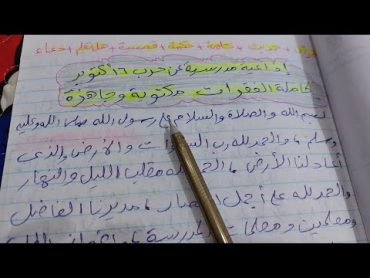 حديث + كلمة + حكمة + قصيدة + هل تعلم + دعاء
إذاعية مدرسية عن حرب ٦ أكتوبر
كاملة الفقرات مكتوبة وجاهزة
بسم الله والصلاة والسلام على رسول الله صلى الله عليه
وسلم، والحمد لله رب السموات والأرض والذى
لنا الأرض، الحمد لله مقلب الليل والنهار
والحمد لله على أجمل، مديرنا الفاضل
ومعلمين ومعلمات المدرسة،